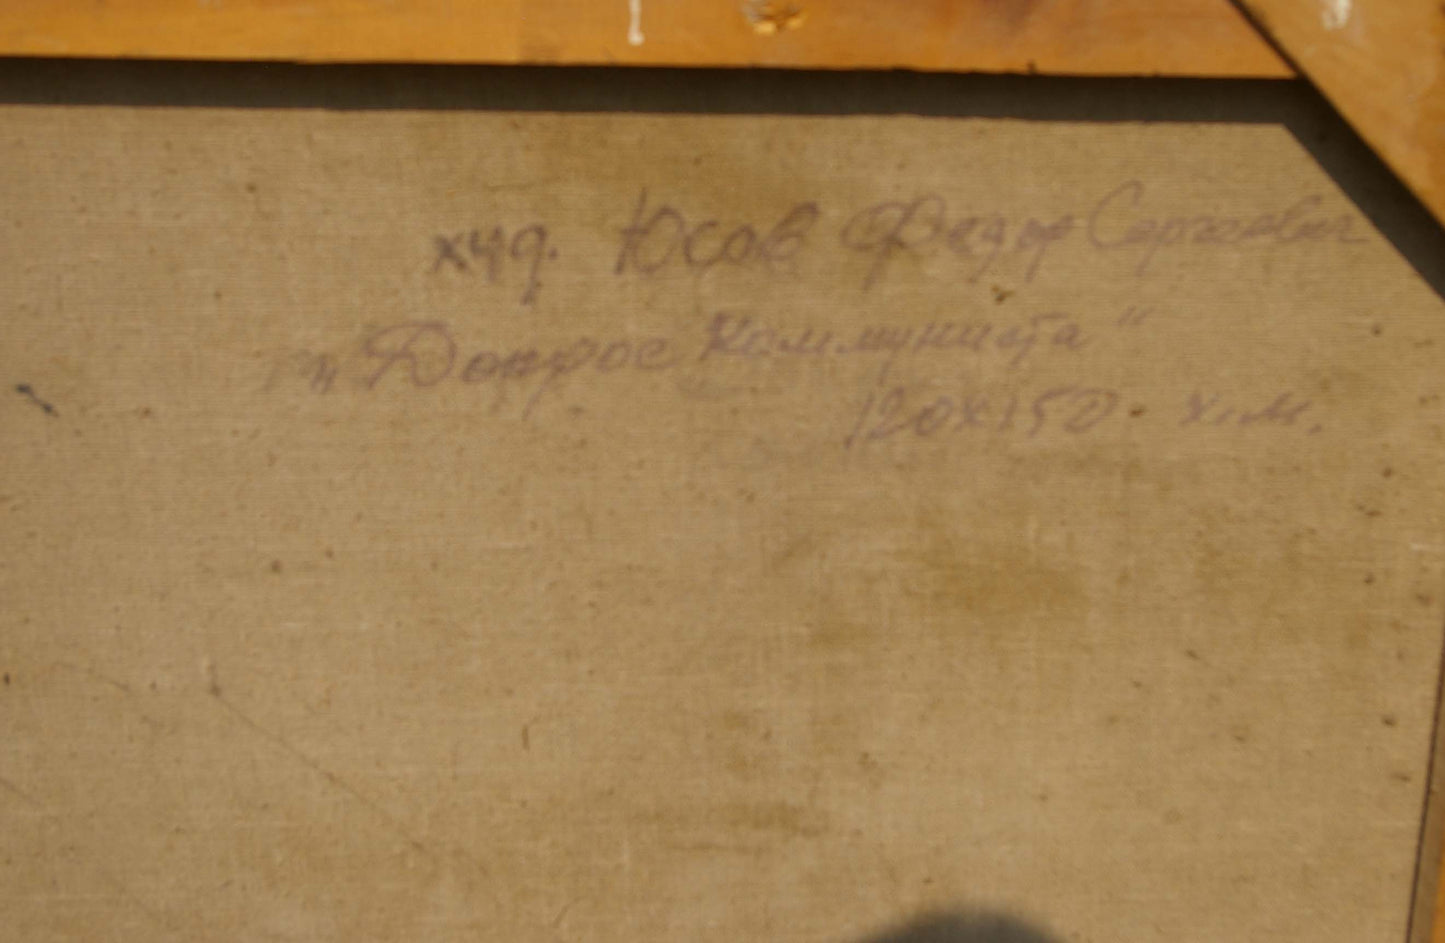 худ. Юсов Федор Сергеевич
„Допрос Коммуниста"
120х150. х.м.